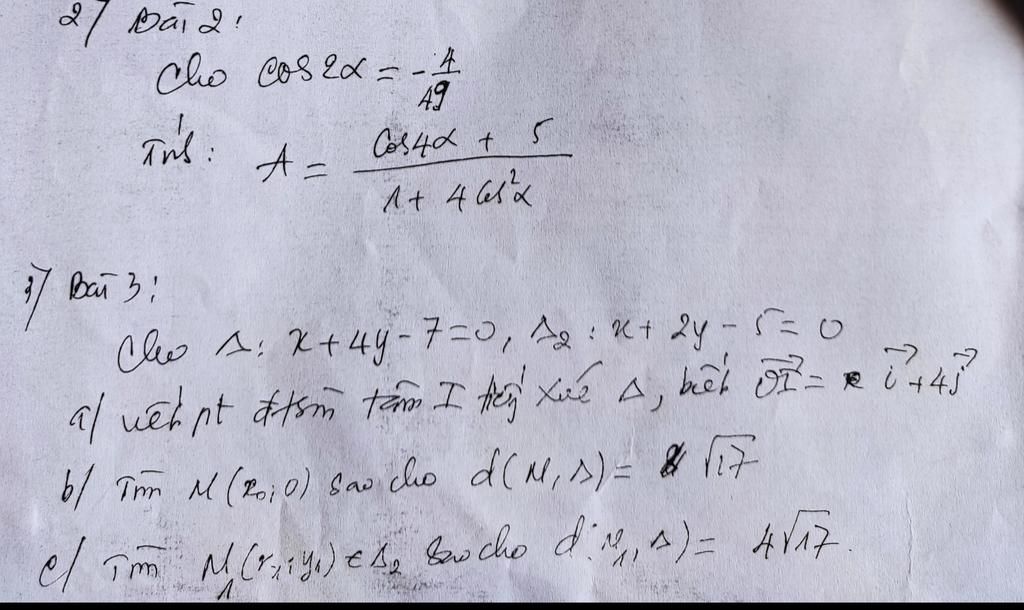 2/ Bài 2:
Cho cos2α = -4/19
Tính: A = (cos4α + 5)/(1 + 4cos²α)
3/ Bài 3:
Cho Δ: x+4y-7=0, Δ₂: x+2y-5=0
a/ viết pt đtròn tâm I tiếp xúc Δ, biết OI = i + 4j
b/ Tìm M(x₀;0) sao cho d(M,Δ)= √17
c/ Tìm M₁(x₁;y₁) ∈ Δ₂ sao cho d(M₁,Δ)= 4√17.